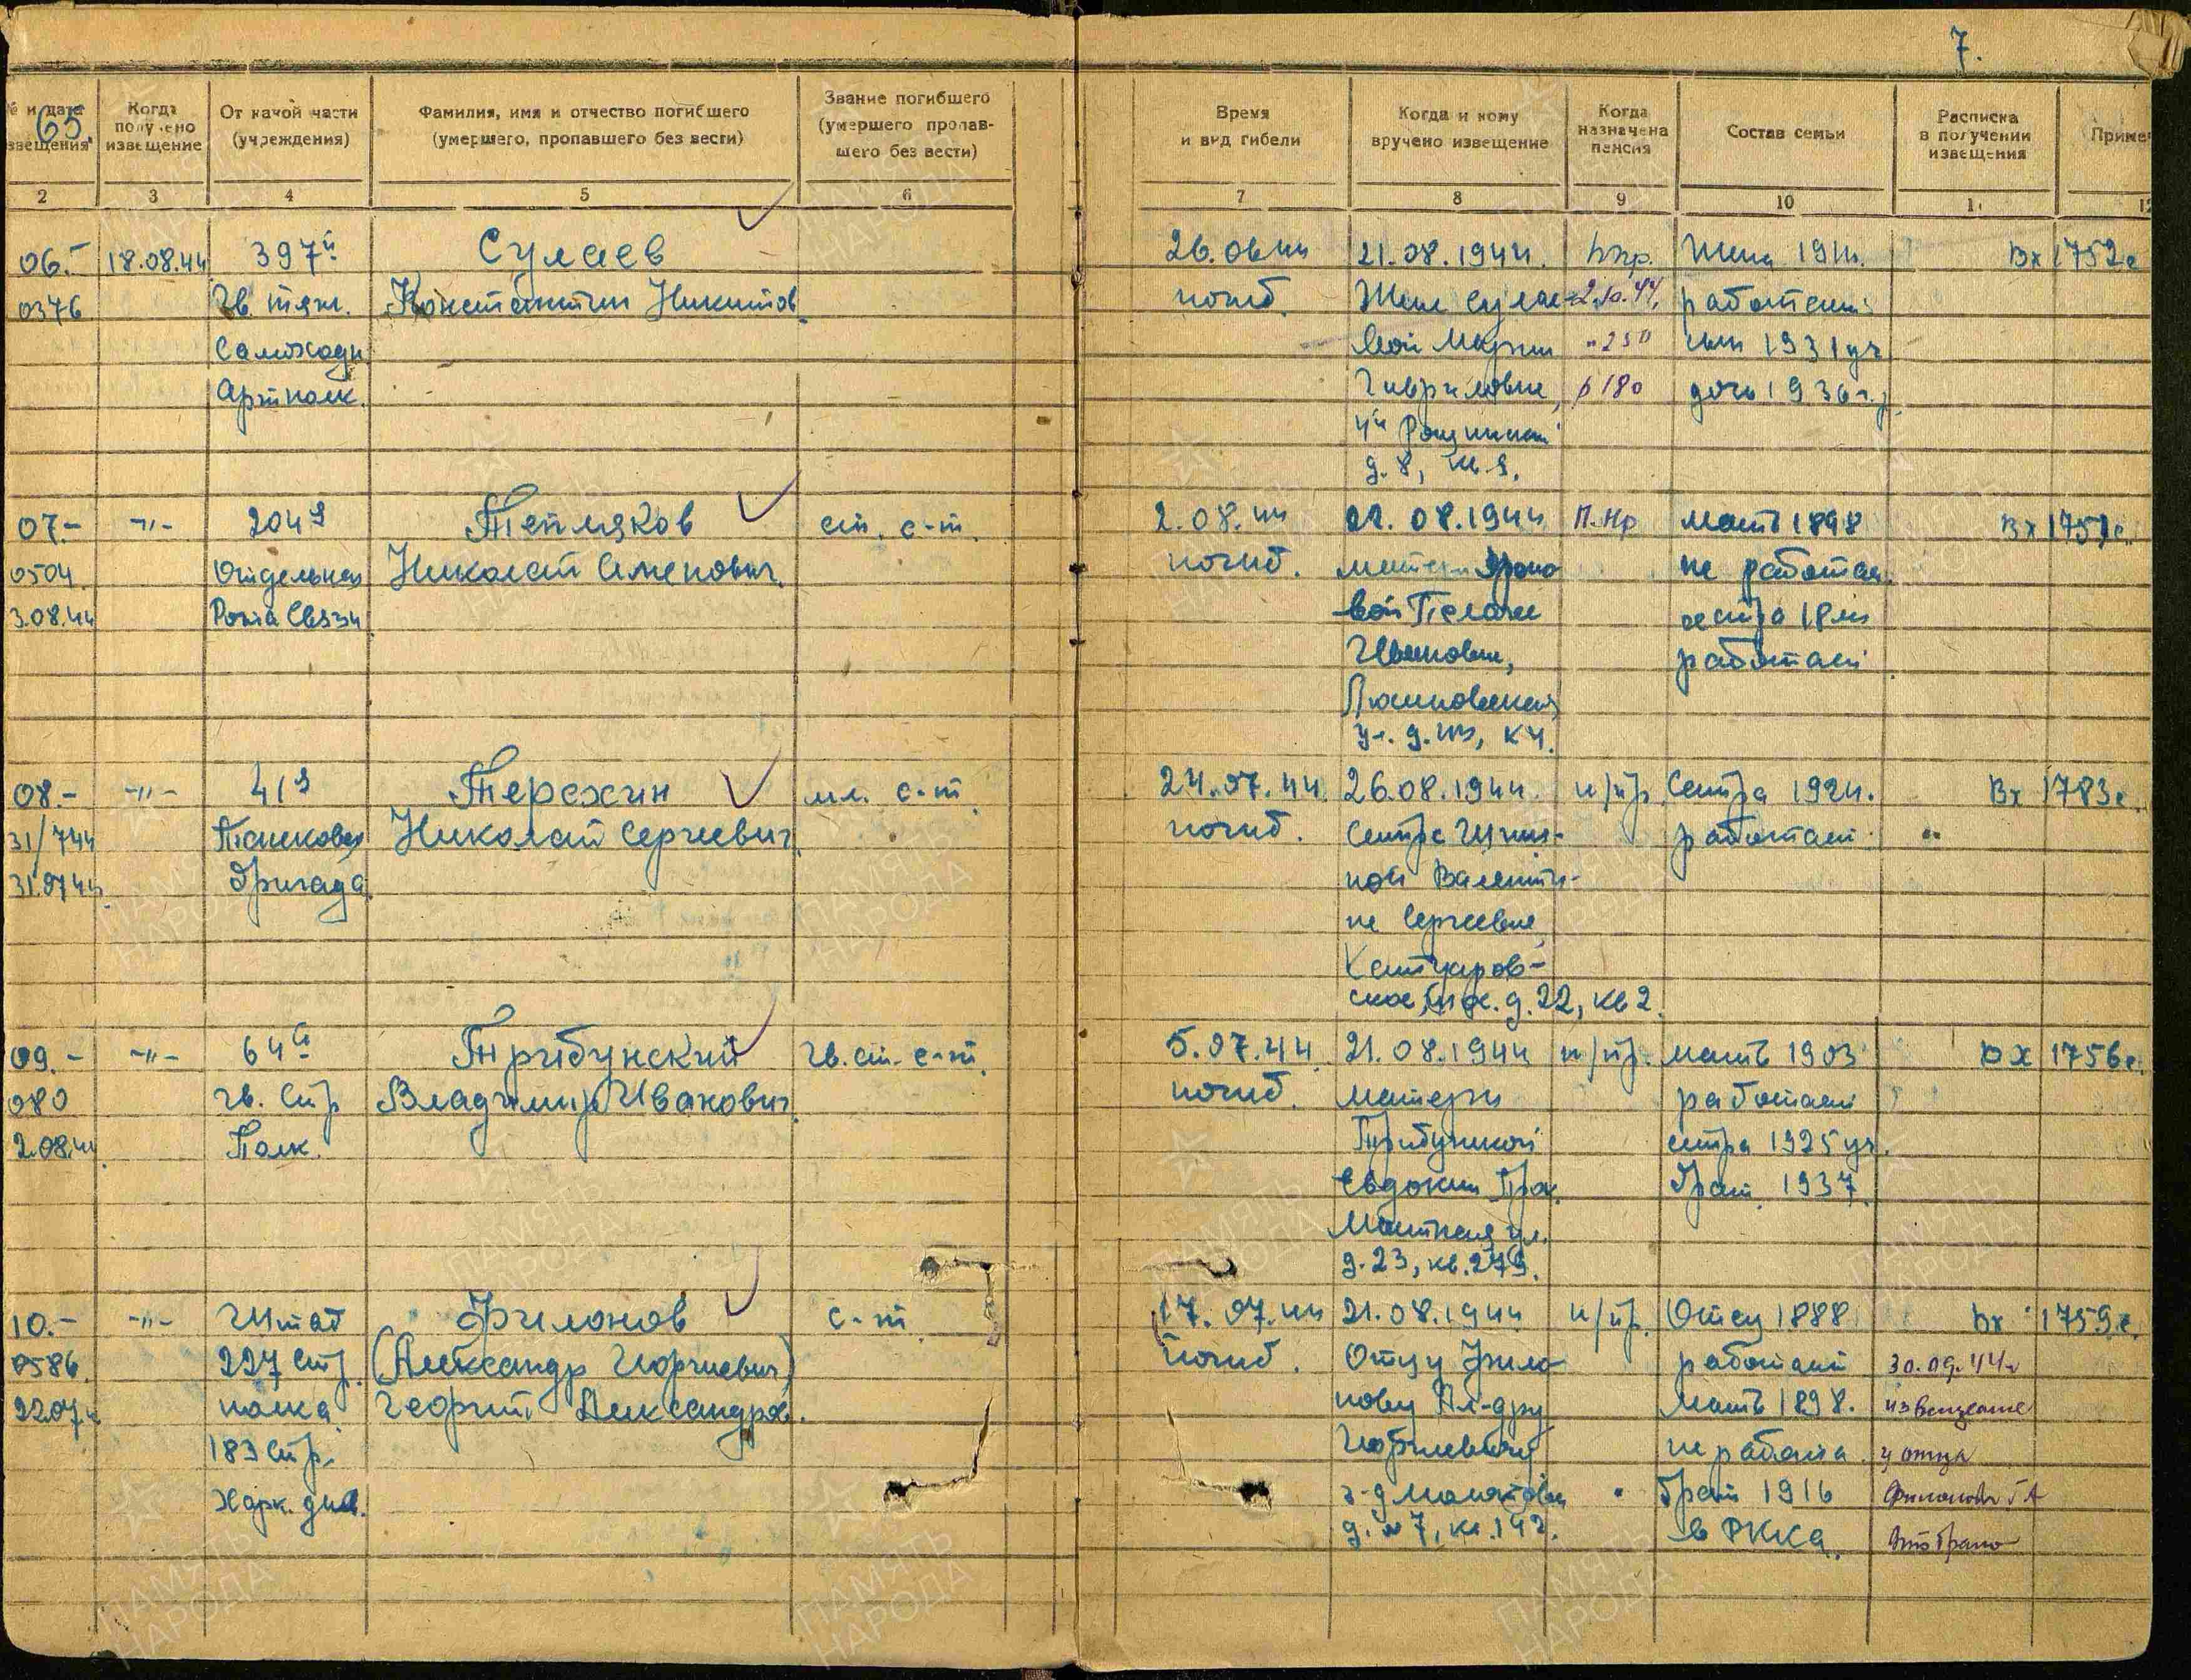 7.
65.
№ и дата извещения
Когда получено извещение
От какой части (учреждения)
Фамилия, имя и отчество погибшего (умершего, пропавшего без вести)
Звание погибшего (умершего пропавшего без вести)
Время и вид гибели
Когда и кому вручено извещение
Когда назначена пенсия
Состав семьи
Расписка в получении извещения
Приме
2 3 4 5 6 7 8 9 10 11 12
06.- 18.08.44 397й Сулаев 26.06.44 21.08.1944. Жена 1911. Вх 1752с
0376 Гв. тяж. Константин Никитов. погиб. Жене Сулае- 2.10.44. работает
Самоходн вой Марии 250 сын 1931 уч
Артполк. Гавриловне, р 180 дочь 1936 г.р.
4й Рощинский
д. 8, кв. 9.
07.- -"- 204я Тепляков ст. с-т. 2.08.44 21.08.1944 П.нр Мать 1898 Вх 1751с.
0504 Отдельная Николай Семенович. погиб. матери не работает
3.08.44 Рота Связи вой Пелагее сестра 18 лет
Ивановне, работает
ул. д. кв, к 4.
08.- -"- 41я Терехин мл. с-т 24.07.44. 26.08.1944 н/пр. Сестра 1924. Вх 1783с.
31/744 Танковая Николай Сергеевич. погиб. Сестре Шиш- работает
31.07.44. бригада ной Валенти-
не Сергеевне,
ское д. 22, кв 2.
09.- -"- 64й Трибунский Гв. ст. с-т. 5.07.44. 21.08.1944 н/пр. мать 1903 Вх 1756с.
080 гв. Стр Владимир Иванович. погиб. Матери работает
2.08.44. Полк. Трибунской сестра 1925 уч.
Евдокии Прок. Брат 1937.
Мытная ул.
д. 23, кв. 279.
10.- -"- Штаб Филонов с-т. 17.07.44 21.08.1944 н/пр. Отец 1888 Вх 1759с.
0586. 227 Стр. (Александр Георгиевич) погиб. Отцу Фило- работает 30.09.44г
22.07.4 полка Георгий Александров. нову Ал-дру Мать 1898. извещение
183 Стр. Георгиевичу не работа у отца
Харк. див. д. № 7, кв. 142. брат 1916 Филонова ГА
в РККА. отобрано
ПАМЯТЬ НАРОДА